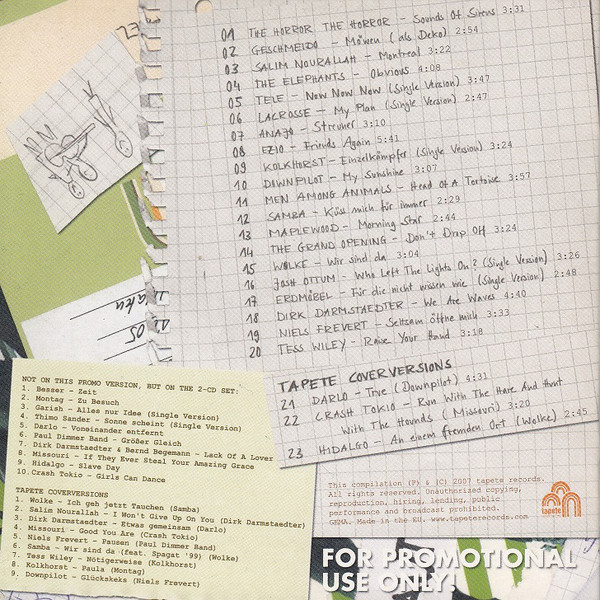 01 THE HORROR THE HORROR - Sounds Of Sirens 3:31
02 GESCHMEIDO - Möwen (als Deko) 2:54
03 SALIM NOURALLAH - Montreal 3:22
04 THE ELEPHANTS - Obvious 4:08
05 TELE - Now Now Now (Single Version) 3:47
06 LACROSSE - My Plan (Single Version) 2:47
07 ANAJO - Streuner 3:10
08 EZIO - Friends Again 5:41
09 KOLKHORST - Einzelkämpfer (Single Version) 3:24
10 DOWNPILOT - My Sunshine 3:07
11 MEN AMONG ANIMALS - Head Of A Tortoise 3:57
12 SAMBA - Küss mich für immer 2:29
13 MAPLEWOOD - Morning Star 2:44
14 THE GRAND OPENING - Don't Drop Off 3:24
15 WOLKE - Wir sind da 3:04
16 JOSH OTTUM - Who Left The Lights On? (Single Version) 3:26
17 ERDMÖBEL - Für die nicht wissen wie (Single Version) 2:48
18 DIRK DARMSTAEDTER - We Are Waves 4:40
19 NIELS FREVERT - Seltsam öffne mich 3:33
20 TESS WILEY - Raise Your Hand 3:18
TAPETE COVERVERSIONS
21 DARLO - True (Downpilot) 4:31
22 CRASH TOKIO - Run With The Hare And Hunt
With The Hounds (Missouri) 3:20
23 HIDALGO - An einem fremden Ort (Wolke) 2:45
NOT ON THIS PROMO VERSION, BUT ON THE 2-CD SET:
1. Besser - Zeit
2. Montag - Zu Besuch
3. Garish - Alles nur Idee (Single Version)
4. Thimo Sander - Sonne scheint (Single Version)
5. Darlo - Voneinander entfernt
6. Paul Dimmer Band - Größer Gleich
7. Dirk Darmstaedter & Bernd Begemann - Lack Of A Lover
8. Missouri - If They Ever Steal Your Amazing Grace
9. Hidalgo - Slave Day
10. Crash Tokio - Girls Can Dance
TAPETE COVERVERSIONS
1. Wolke - Ich geh jetzt Tauchen (Samba)
2. Salim Nourallah - I Won't Give Up On You (Dirk Darmstaedter)
3. Dirk Darmstaedter - Etwas gemeinsam (Darlo)
4. Missouri - Good You Are (Crash Tokio)
5. Niels Frevert - Pausen (Paul Dimmer Band)
6. Samba - Wir sind da (feat. Spagat '99) (Wolke)
7. Tess Wiley - Nötigerweise (Kolkhorst)
8. Kolkhorst - Paula (Montag)
9. Downpilot - Glückskeks (Niels Frevert)
This compilation (P) & (C) 2007 tapete records.
All rights reserved. Unauthorized copying,
reproduction, hiring, lending, public
performance and broadcast prohibited.
GEMA. Made in the EU. www.tapeterecords.com
tapete
FOR PROMOTIONAL
USE ONLY!